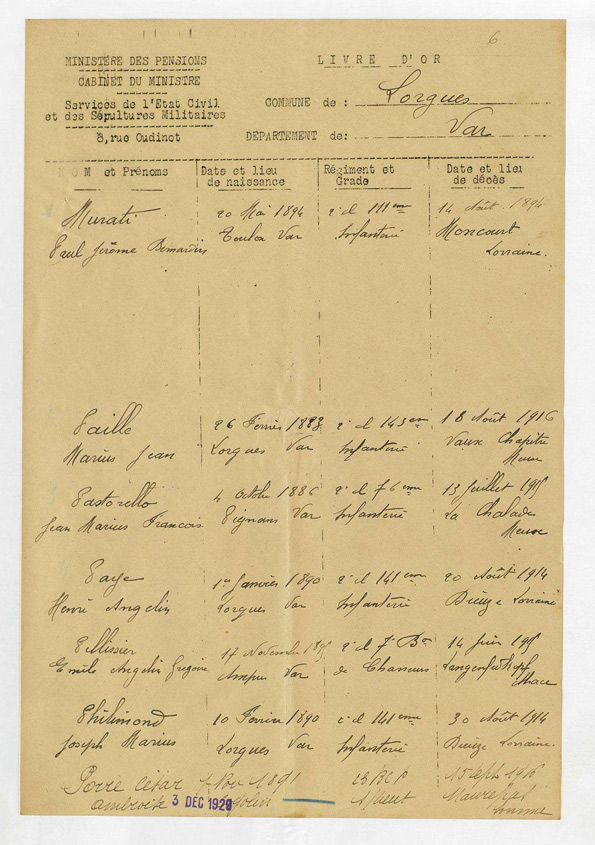 6
MINISTERE DES PENSIONS
CABINET DU MINISTRE
Services de l'Etat Civil
et des Sépultures Militaires
8, rue Oudinot
LIVRE D'OR
COMMUNE de : Lorgues
DEPARTEMENT de: Var
NOM et Prénoms Date et lieu de naissance Régiment et Grade Date et lieu de décès
Murati 20 Mai 1894 2e cl 111eme 14 Août 1894
Paul Jérôme Bernardin Toulon Var Infanterie Moncourt
Lorraine.
Paille 26 Février 1883 2e cl 143eme 18 Août 1916
Marius Jean Lorgues Var Infanterie Vaux Chapitre
Meuse
Pastorello 4 Octobre 1886 2e cl 76eme 13 Juillet 1915
Jean Marius Francois Pignans Var Infanterie La Chalade
Meuse
Paye 1er Janvier 1890 2e cl 141eme 20 Août 1914
Henri Angelin Lorgues Var Infanterie Dieuze Lorraine
Pellissier 17 Novembre 2e cl 7e Bon 14 Juin 1915
Emile Angelin Gregoire Ampus Var de Chasseurs Langenfeldkopf
Alsace
Philimond 10 Février 1890 2e cl 141eme 30 Août 1914
Joseph Marius Lorgues Var Infanterie Dieuze Lorraine.
Porre César Nov 1891 23 BCP 15 Sept 1916
Ambroise Cogolin Maurepas
Somme
3 DEC 1929